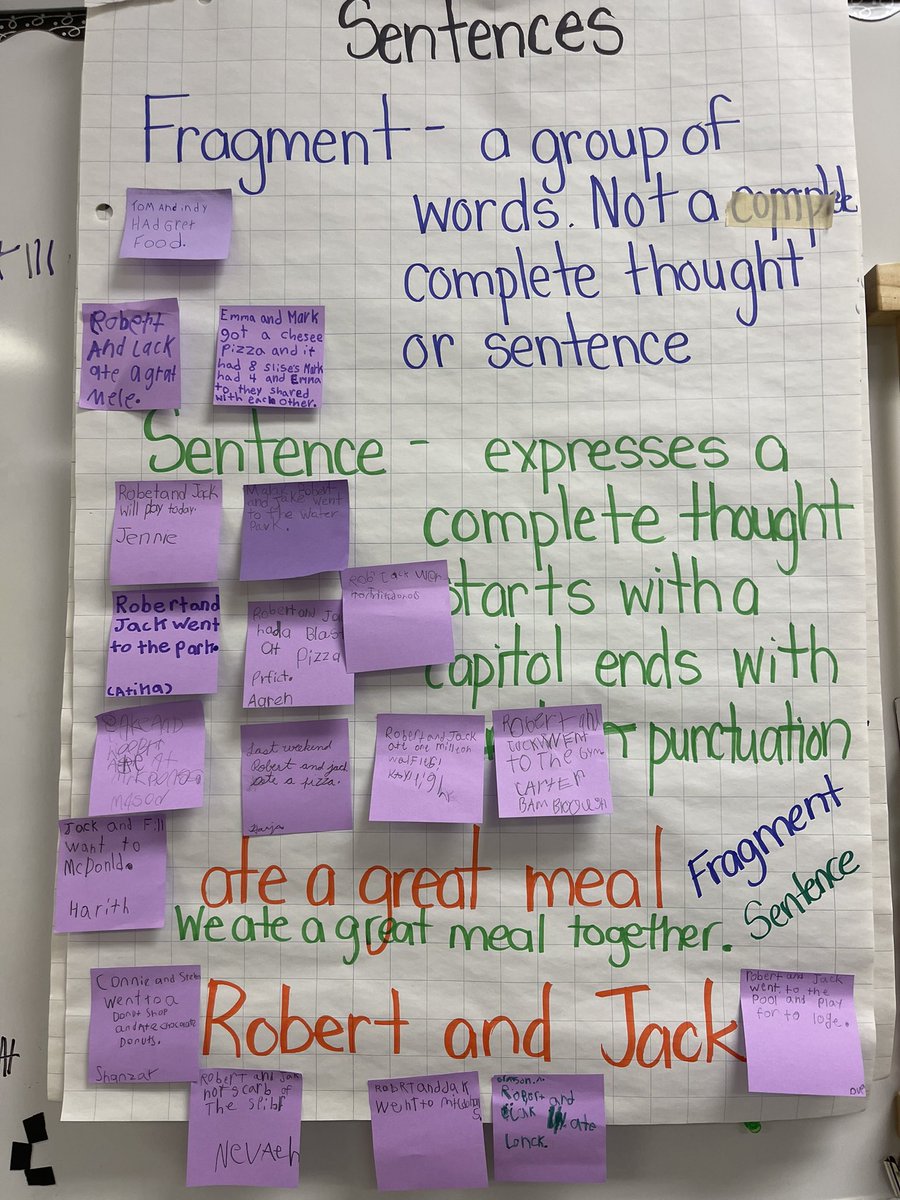 Sentences
Fragment - a group of
words. Not a comple
complete thought
or sentence
TOM And indy
HAD Gret
Food.
Robert
And Lack
ate a grat
Mele.
Emma and Mark
got a chesee
Pizza and it
had 8 slises Mark
had 4 and Emma
to they shared
with each other.
Sentence - expresses a
complete thought
starts with a
capitol ends with
punctuation
Robetand Jack
will play today.
Jennie
and Jake went
to the water
Park.
Robert and
Jack went
to the park.
(Atiha)
Robert and Ja
hada Blast
at Pizza
Prfict.
Aareh
Rob
AND
Last weekend
Robert and jack
ate a pizza.
Robert and Jack
ate one million
Robert and
JackWENT
TO THE Gym
CARTER
BAM
Jack and Fill
want to
McDonld.
Harith
ate a great meal Fragment
We ate a great meal together. Sentence
Robert and Jack
Connie and Steb
went to a
Donut Shop
and Ate chocolate
Donuts.
Shanzar
Robert and Jack
went to the
Pool and Play
for to loge.
Robert and Jak
not scarb of
The
NevAeh
RobRtanddak
went to
Robert and
ate
Lonck.